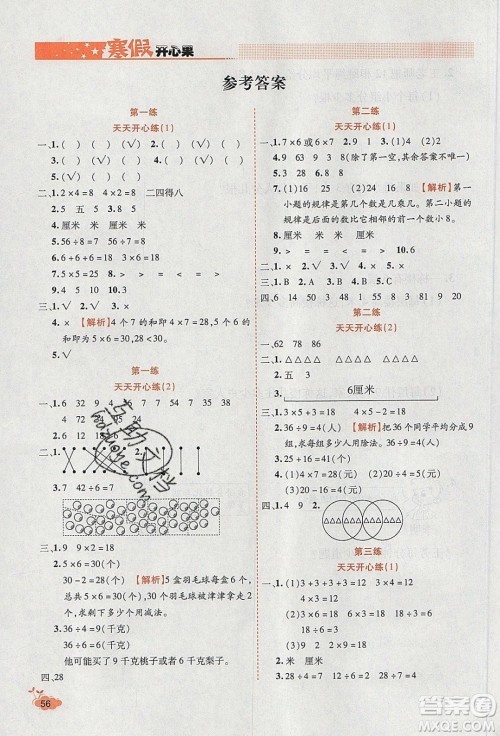 寒假开心果
参考答案
第一练
天天开心练(1)
一、1.( ) ( ) (√) ( ) (√)
( ) ( ) ( ) (√) ( )
二、1.2×4=8 4×2=8 二四得八
2.5 五 5
3.米 厘米 厘米 米 米
4.28
5.56÷8=7 56÷7=8
6.> = < = > <
三、1.√ 2.√ 3.√
4.× 【解析】4个7的和即4×7=28,5个6
的和即5×6=30,28<30。
5.√
第一练
天天开心练(2)
一、1.6 32 9 4 6 35 7
4 72 4 5 24
二、1. 2.
3.7 42÷6=7
三、1.9 9×2=18
2.5×6=30(个)
30-2=28(个) 【解析】5盒羽毛球每盒6
个,共有30个羽毛球被津津拿走2个,
求剩下多少个用减法。
3.36÷4=9(千克)
36÷6=6(千克)
他可能买了9千克桃子或者6千克梨子。
四、28
56
第二练
天天开心练(1)
一、1.7×6或6×7 2.1 3.4 4.2
5.3 9 8 9(除了第一空,其余答案不唯一)
6.53 28
7.(1)16 24 (2)24 16 【解析】第一
小题的规律是第几个数是几乘几。第二小题
的规律是后面的数比它相邻的前一个数小8。
8.厘米 米
9.> < > < 10.6
二、1.√ 2.√
三、1.B 2.A 3.B 4.C 5.A
四、6 12 18 24 30
第二练
天天开心练(2)
一、62 78 86
二、1.△△△△△△△△△△△△
2.五 3
3. 6厘米
三、1.3×5+3=18(个)
2.36÷9=4(个) 【解析】把36个同学平均分成9
组,求每组多少人用除法。
3.(1)42÷6=7(元) (2)5×8=40(元)
四、
第三练
天天开心练(1)
一、1.(1)3+3+3+3+3+3=18 6+6+6=18
(2)3×6=18 6×3=18
2.米 厘米
3.(1)7 28÷4=7 (2)4 28÷7=4